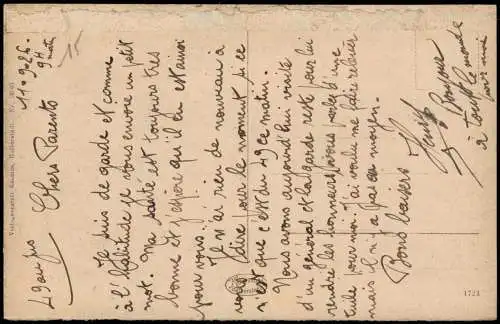 11.9.26.
9H matin
15
49 au jus
Chers Parents
Je suis de garde et comme
à l'habitude je vous envoie un petit
mot. Ma santé est toujours très
bonne et j'espère qu'il en est ainsi
pour vous.
Il n'y a rien de nouveau à
vous dire pour le moment si ce
n'est que c'est du 49 ce matin.
Nous avons aujourd'hui visite
d'un général et la garde reste pour lui
rendre les honneurs, vous parlez d'une
tuile pour moi. J'ai voulu me faire relever
mais il n'y a pas eu moyen.
Bons baisers
Bonjour
à tout le monde
pour moi
1723